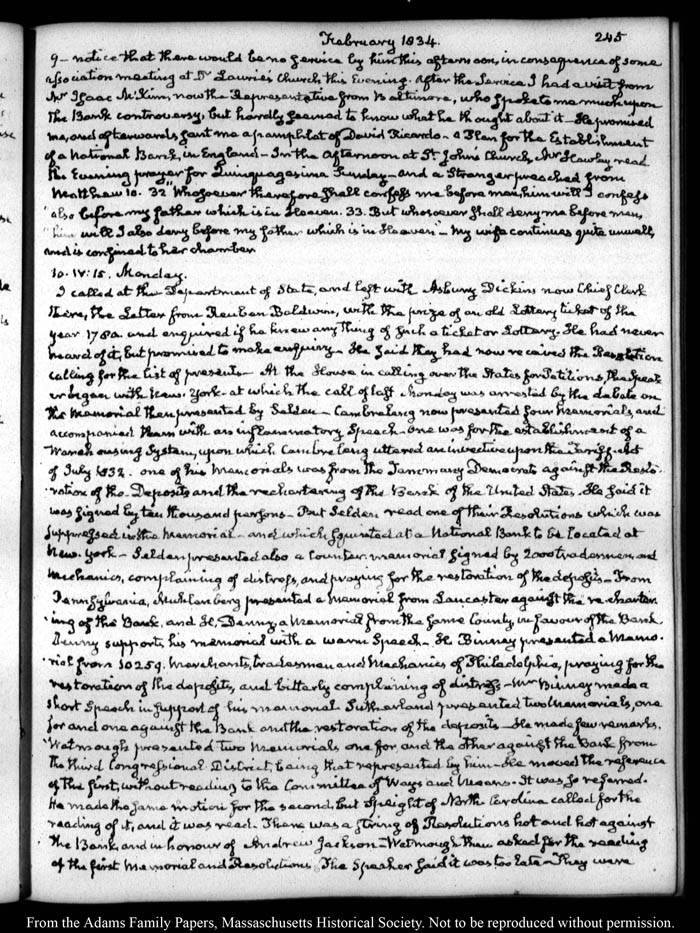 February 1834.
245
9 - notice that there would be no service by him this afternoon, in consequence of some
association meeting at Dr. Laurie's Church this Evening. After the Service I had a visit from
Mr. Isaac McKim, now the Representative from Baltimore, who spoke to me much upon
the Bank controversy, but hardly seemed to know what he thought about it - He promised
me, and afterwards sent me a pamphlet of David Ricardo - a Plan for the Establishment
of a National Bank, in England - In the Afternoon at St. John's Church, Mr. Hawley read
the Evening prayer for Quinquagesima Sunday - and a Stranger preached from
Matthew 10. 32 "Whosoever therefore shall confess me before men, him will I confess
"also before my father which is in Heaven. 33. But whosoever shall deny me before men,
"him will I also deny before my father which is in Heaven" - My wife continues quite unwell,
and is confined to her chamber
10. IV:15. Monday.
I called at the Department of State, and left with Asbury Dickins now Chief Clerk
there, the Letter from Reuben Baldwin, with the prize of an old Lottery ticket of the
year 1780. and enquired if he knew any thing of such a ticket or Lottery. He had never
heard of it, but promised to make enquiry - He said they had now received the Resolution
calling for the list of presents - At the House in calling over the States for Petitions, the Speak-
er began with New-York - at which the call of last Monday was arrested by the debate on
the Memorial then presented by Selden - Cambreleng now presented four Memorials, and
accompanied them with an inflammatory Speech - one was for the establishment of a
Warehousing System, upon which Cambreleng uttered an invective upon the Tariff Act
of July 1832. one of his Memorials was from the Tammany Democrats against the Resto-
-ration of the Deposits and the rechartering of the Bank of the United States. He said it
was signed by ten thousand persons - But Selden read one of their Resolutions which was
suppressed in the Memorial - and which squinted at a National Bank to be located at
New-York - Selden presented also a Counter memorial signed by 2000 tradesmen, and
Mechanics, complaining of distress, and praying for the restoration of the deposits - From
Pennsylvania, Muhlenberg presented a Memorial from Lancaster against the re-charter-
-ing of the Bank, and H. Denny a Memorial from the same County, in favour of the Bank
Denny supports his memorial with a warm Speech - H. Binney presented a Memo-
-rial from 10259. Merchants, tradesmen and Mechanics of Philadelphia, praying for the
restoration of the deposits, and bitterly complaining of distress - Mr. Binney made a
short Speech in support of his memorial Sutherland presented two Memorials, one
for and one against the Bank and the restoration of the deposits - He made few remarks.
Watmough presented two Memorials one for, and the other against the Bank from
the third Congressional District, being that represented by him - He moved the reference
of the first, without reading to the Committee of Ways and Means. It was so referred.
He made the same motion for the second, but Speight of North Carolina called for the
reading of it, and it was read. There was a string of Resolutions hot and hot against
the Bank, and in honour of Andrew Jackson - Watmough then asked for the reading
of the first Memorial and Resolutions. The Speaker said it was too late - They were
From the Adams Family Papers, Massachusetts Historical Society. Not to be reproduced without permission.